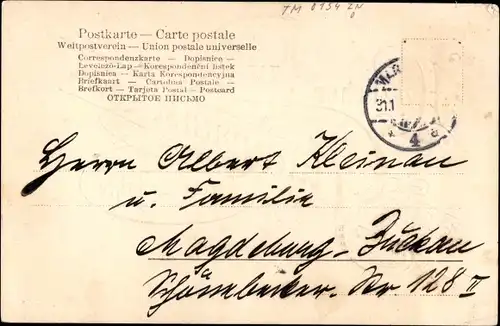 TM 0154 ZN
Postkarte — Carte postale
Weltpostverein — Union postale universelle
Correspondenzkarte — Dopisnice —
Levelező-Lap — Korespondenční lístek
Dopisnica — Karta Korespondencyjna
Briefkaart — Cartolina Postale —
Brefkort — Tarjeta Postal — Postcard
ОТКРЫТОЕ ПИСЬМО
31.1
* 4 a
Herrn Albert Kleinau
u. Familie
Magdeburg-Buckau
Schönebecker. Str. 128 II